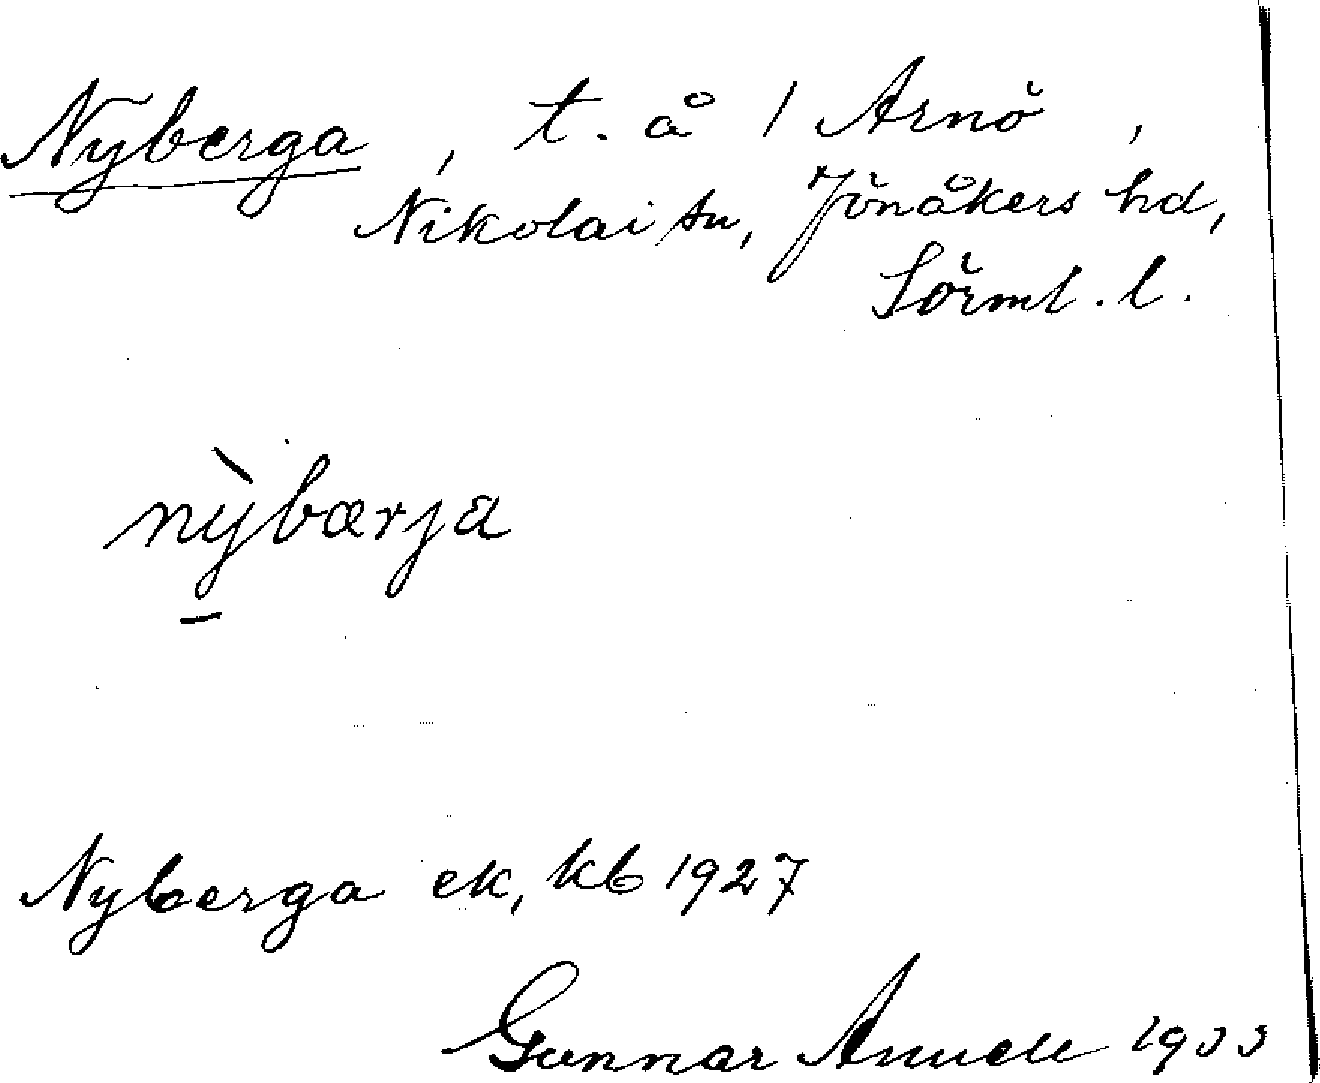 Nyberga, t. å 1 Arnö,
Nikolai sn, Jönåkers hd,
Sörml. l.
nỳbærja
Nyberga ek, kb 1927
Gunnar 1933